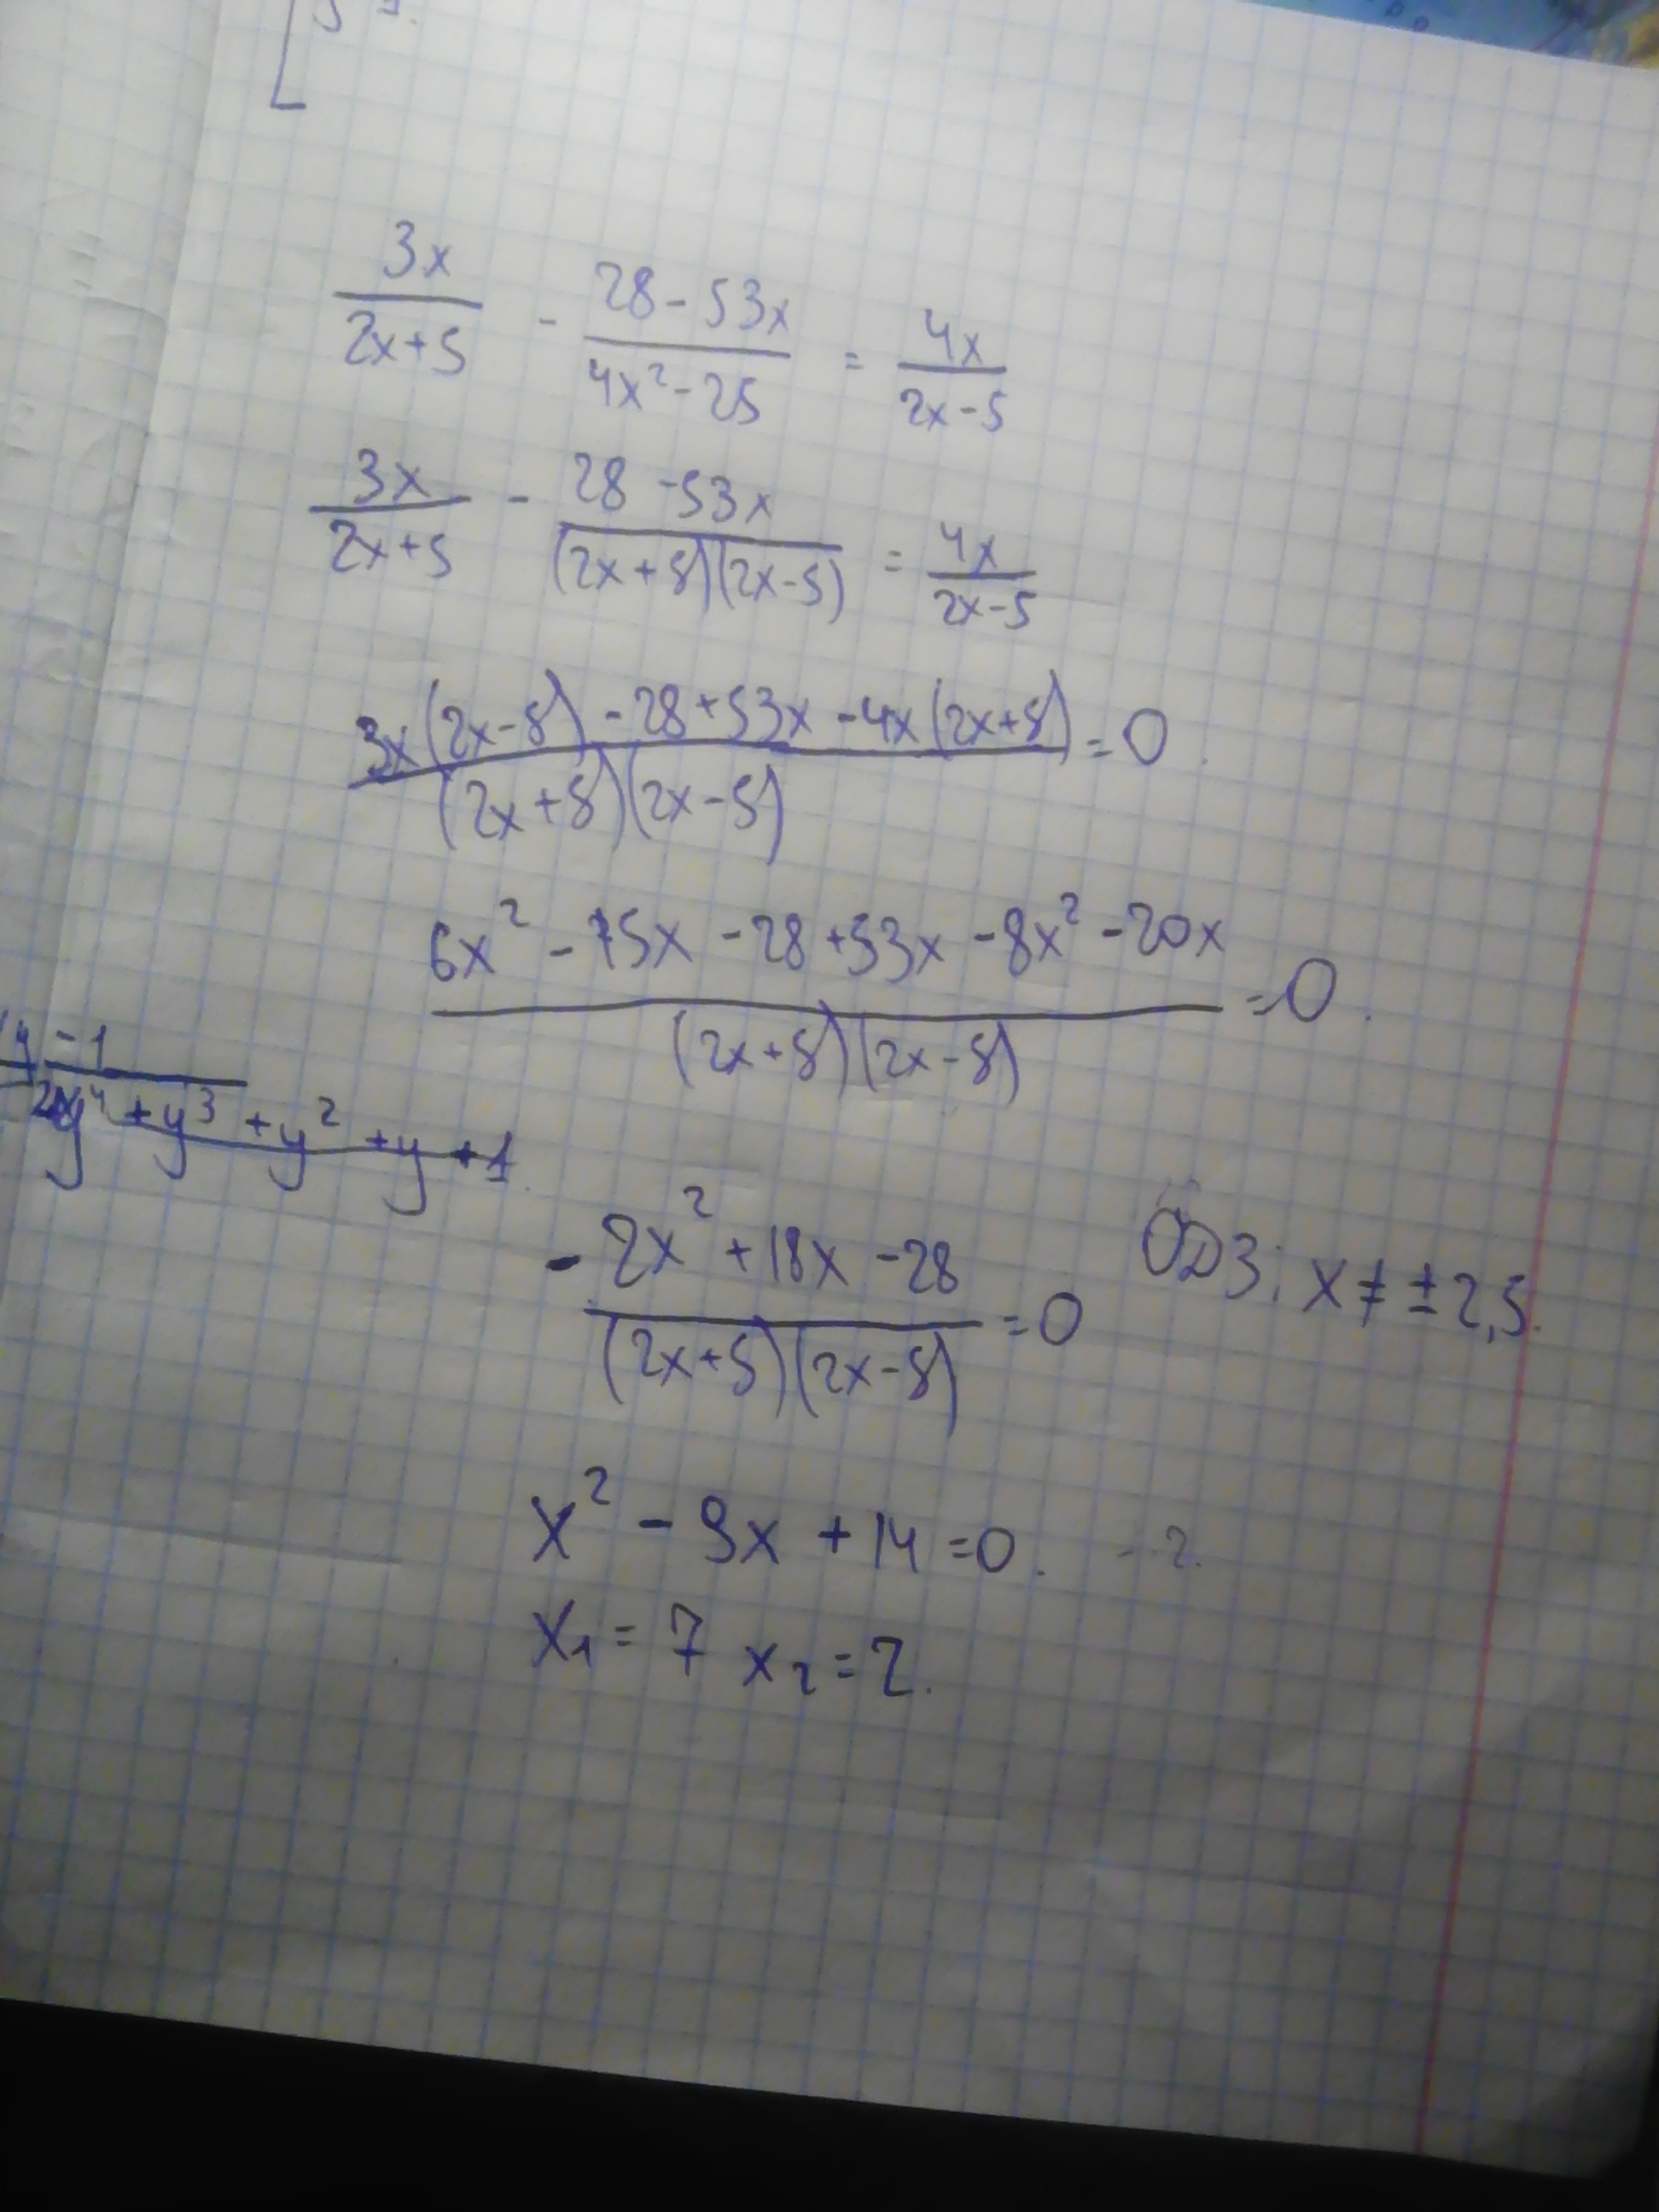 3x/(2x+5) - (28-53x)/(4x²-25) = 4x/(2x-5)
3x/(2x+5) - (28-53x)/((2x+5)(2x-5)) = 4x/(2x-5)
(3x(2x-5)-28+53x-4x(2x+5))/((2x+5)(2x-5)) = 0.
(6x²-15x-28+53x-8x²-20x)/((2x+5)(2x-5)) = 0.
y-1
y⁴+y³+y²+y+1
(-2x²+18x-28)/((2x+5)(2x-5)) = 0 ОДЗ: x ≠ ±2,5.
x²-9x+14=0. -2.
x₁=7 x₂=2.